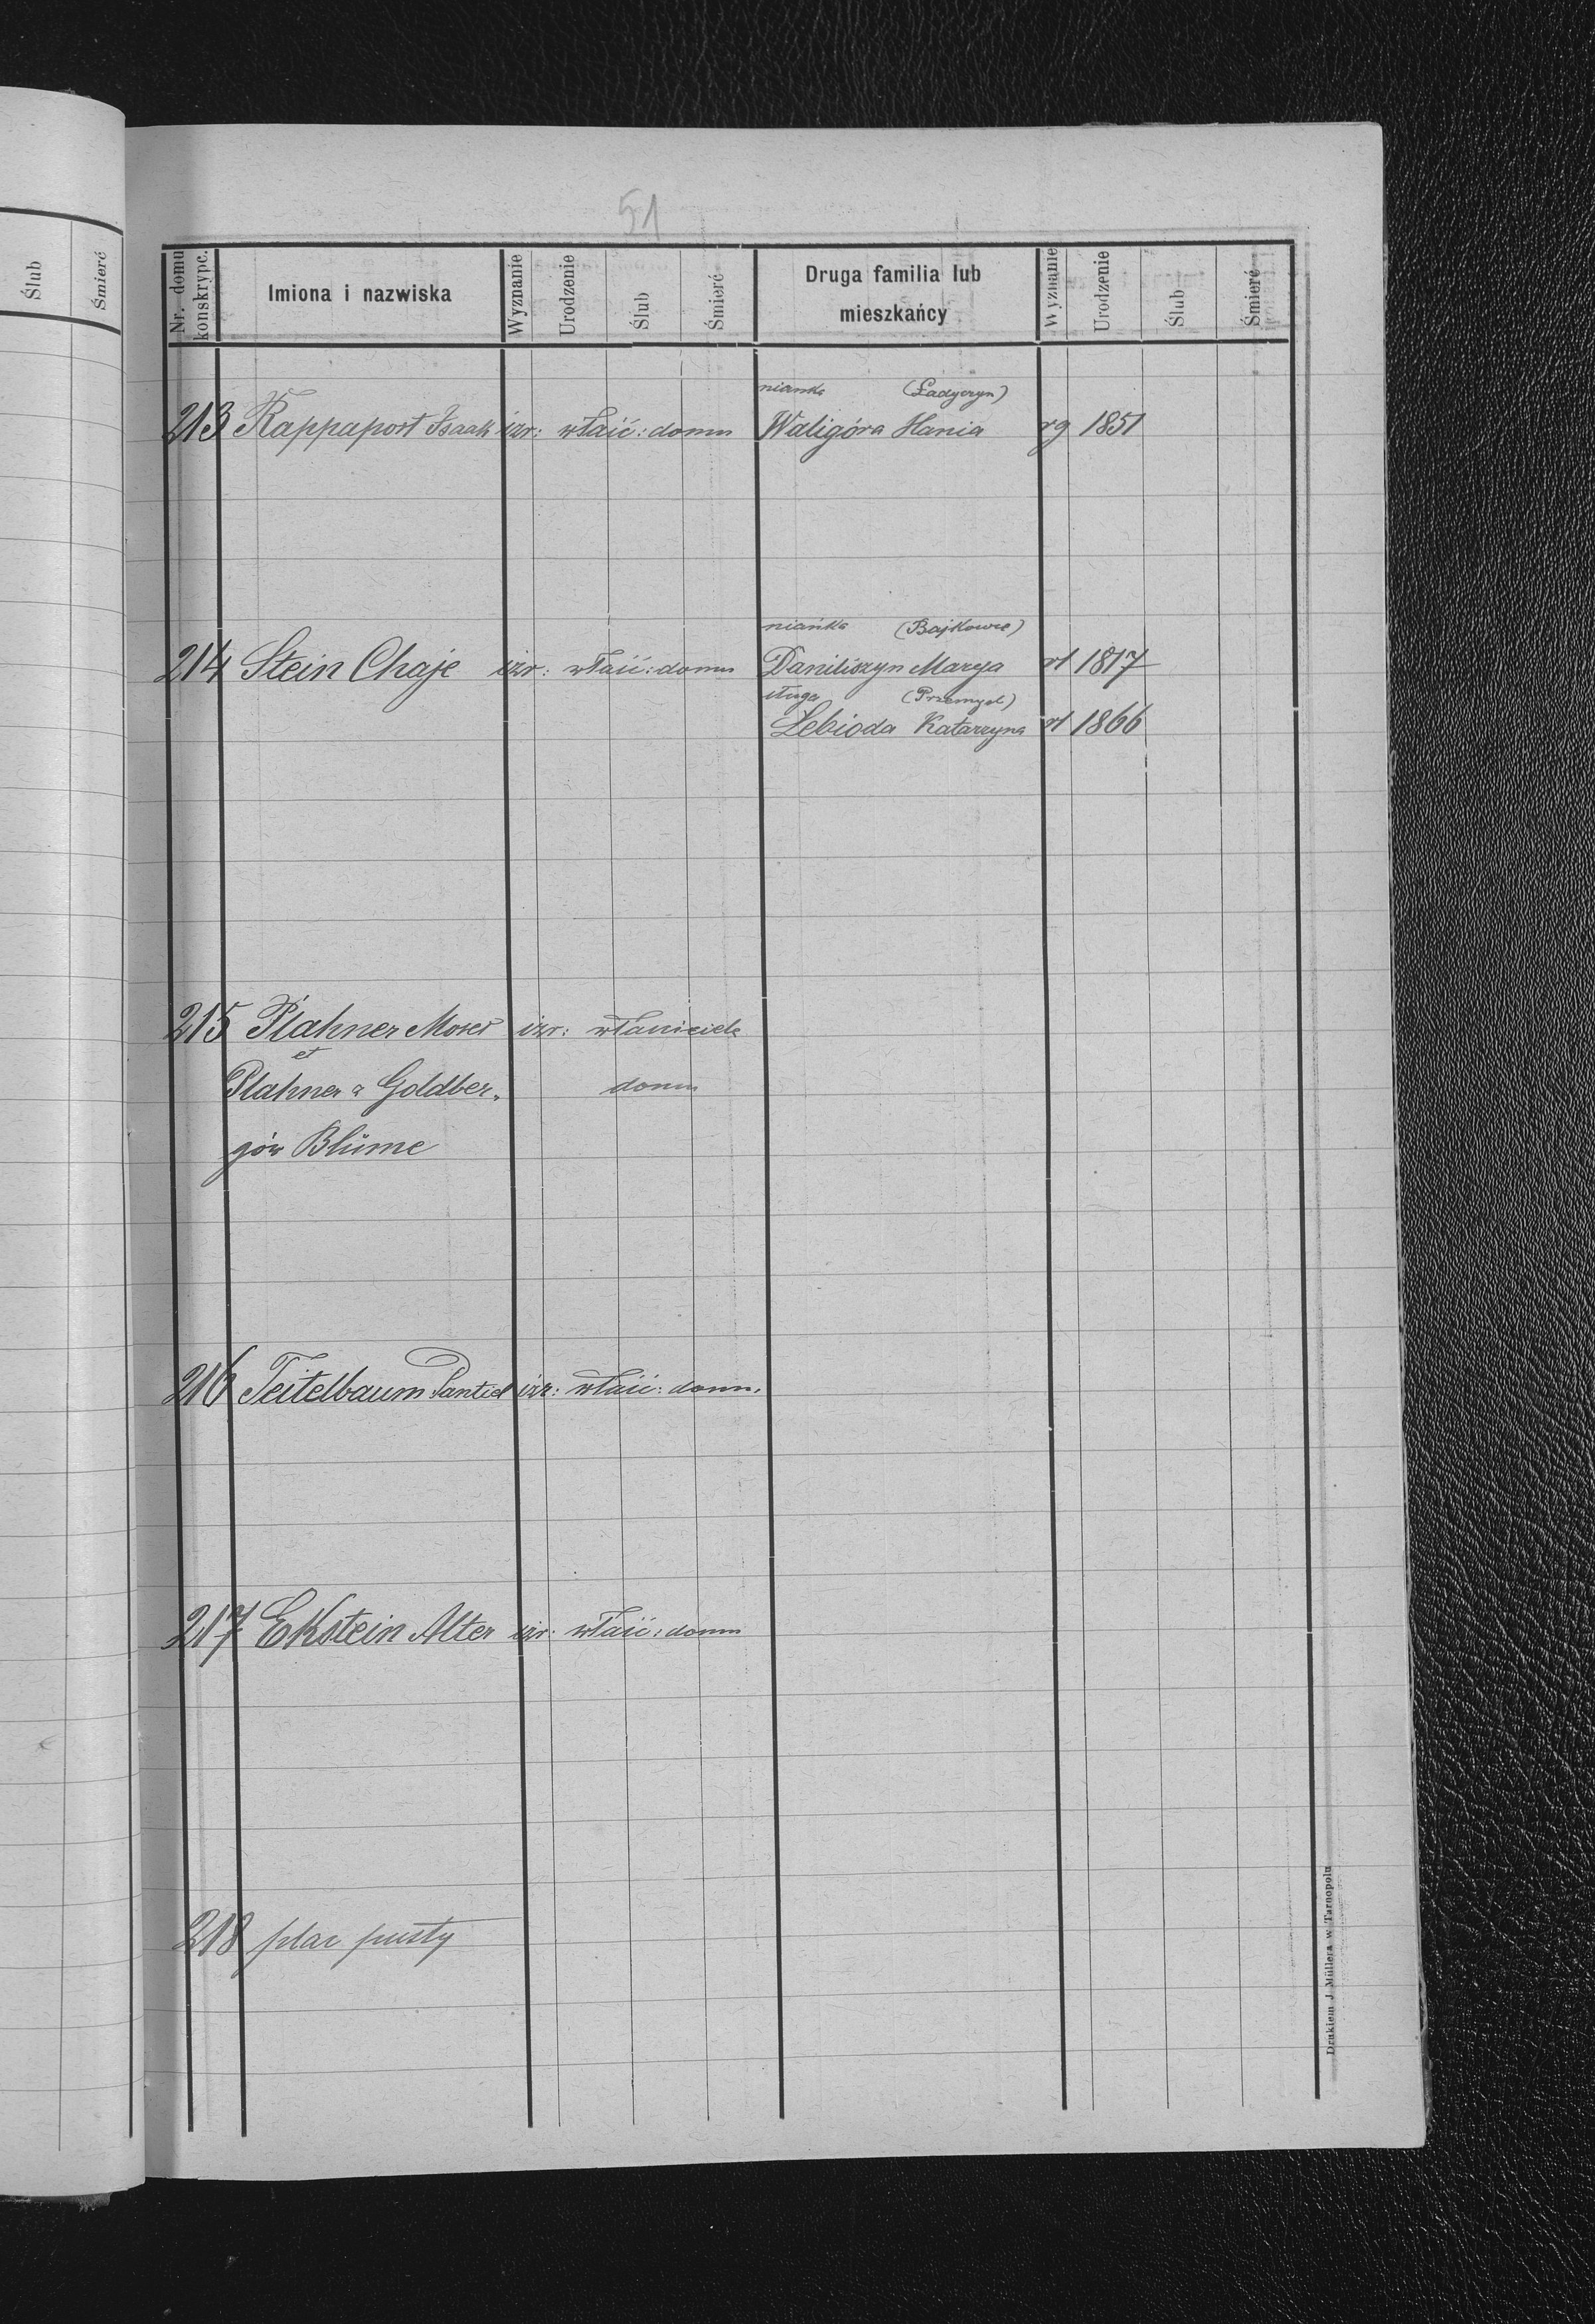 Ślub
Śmierć
51
Nr. domu konskrypc.
Imiona i nazwiska
Wyznanie
Urodzenie
Ślub
Śmierć
Druga familia lub mieszkańcy
Wyznanie
Urodzenie
Ślub
Śmierć
nianka (Ładyczyn)
213 Rappaport Isaak izr: właść: domu Waligóra Hania rg 1851
niańka (Bajkowce)
214 Stein Chaje izr: właść: domu Daniliszyn Marya rł 1817
sługa (Przemyśl)
Lebioda Katarzyna rł 1866
215 Płahner Moses izr: właściciele
et
Płahner a Goldber„ domu
gów Blüme
216 Teitelbaum izr: właść: domu.
217 Ekstein Alter izr: właść: domu
218 plac pusty
Drukiem J Müllera w Tarnopolu